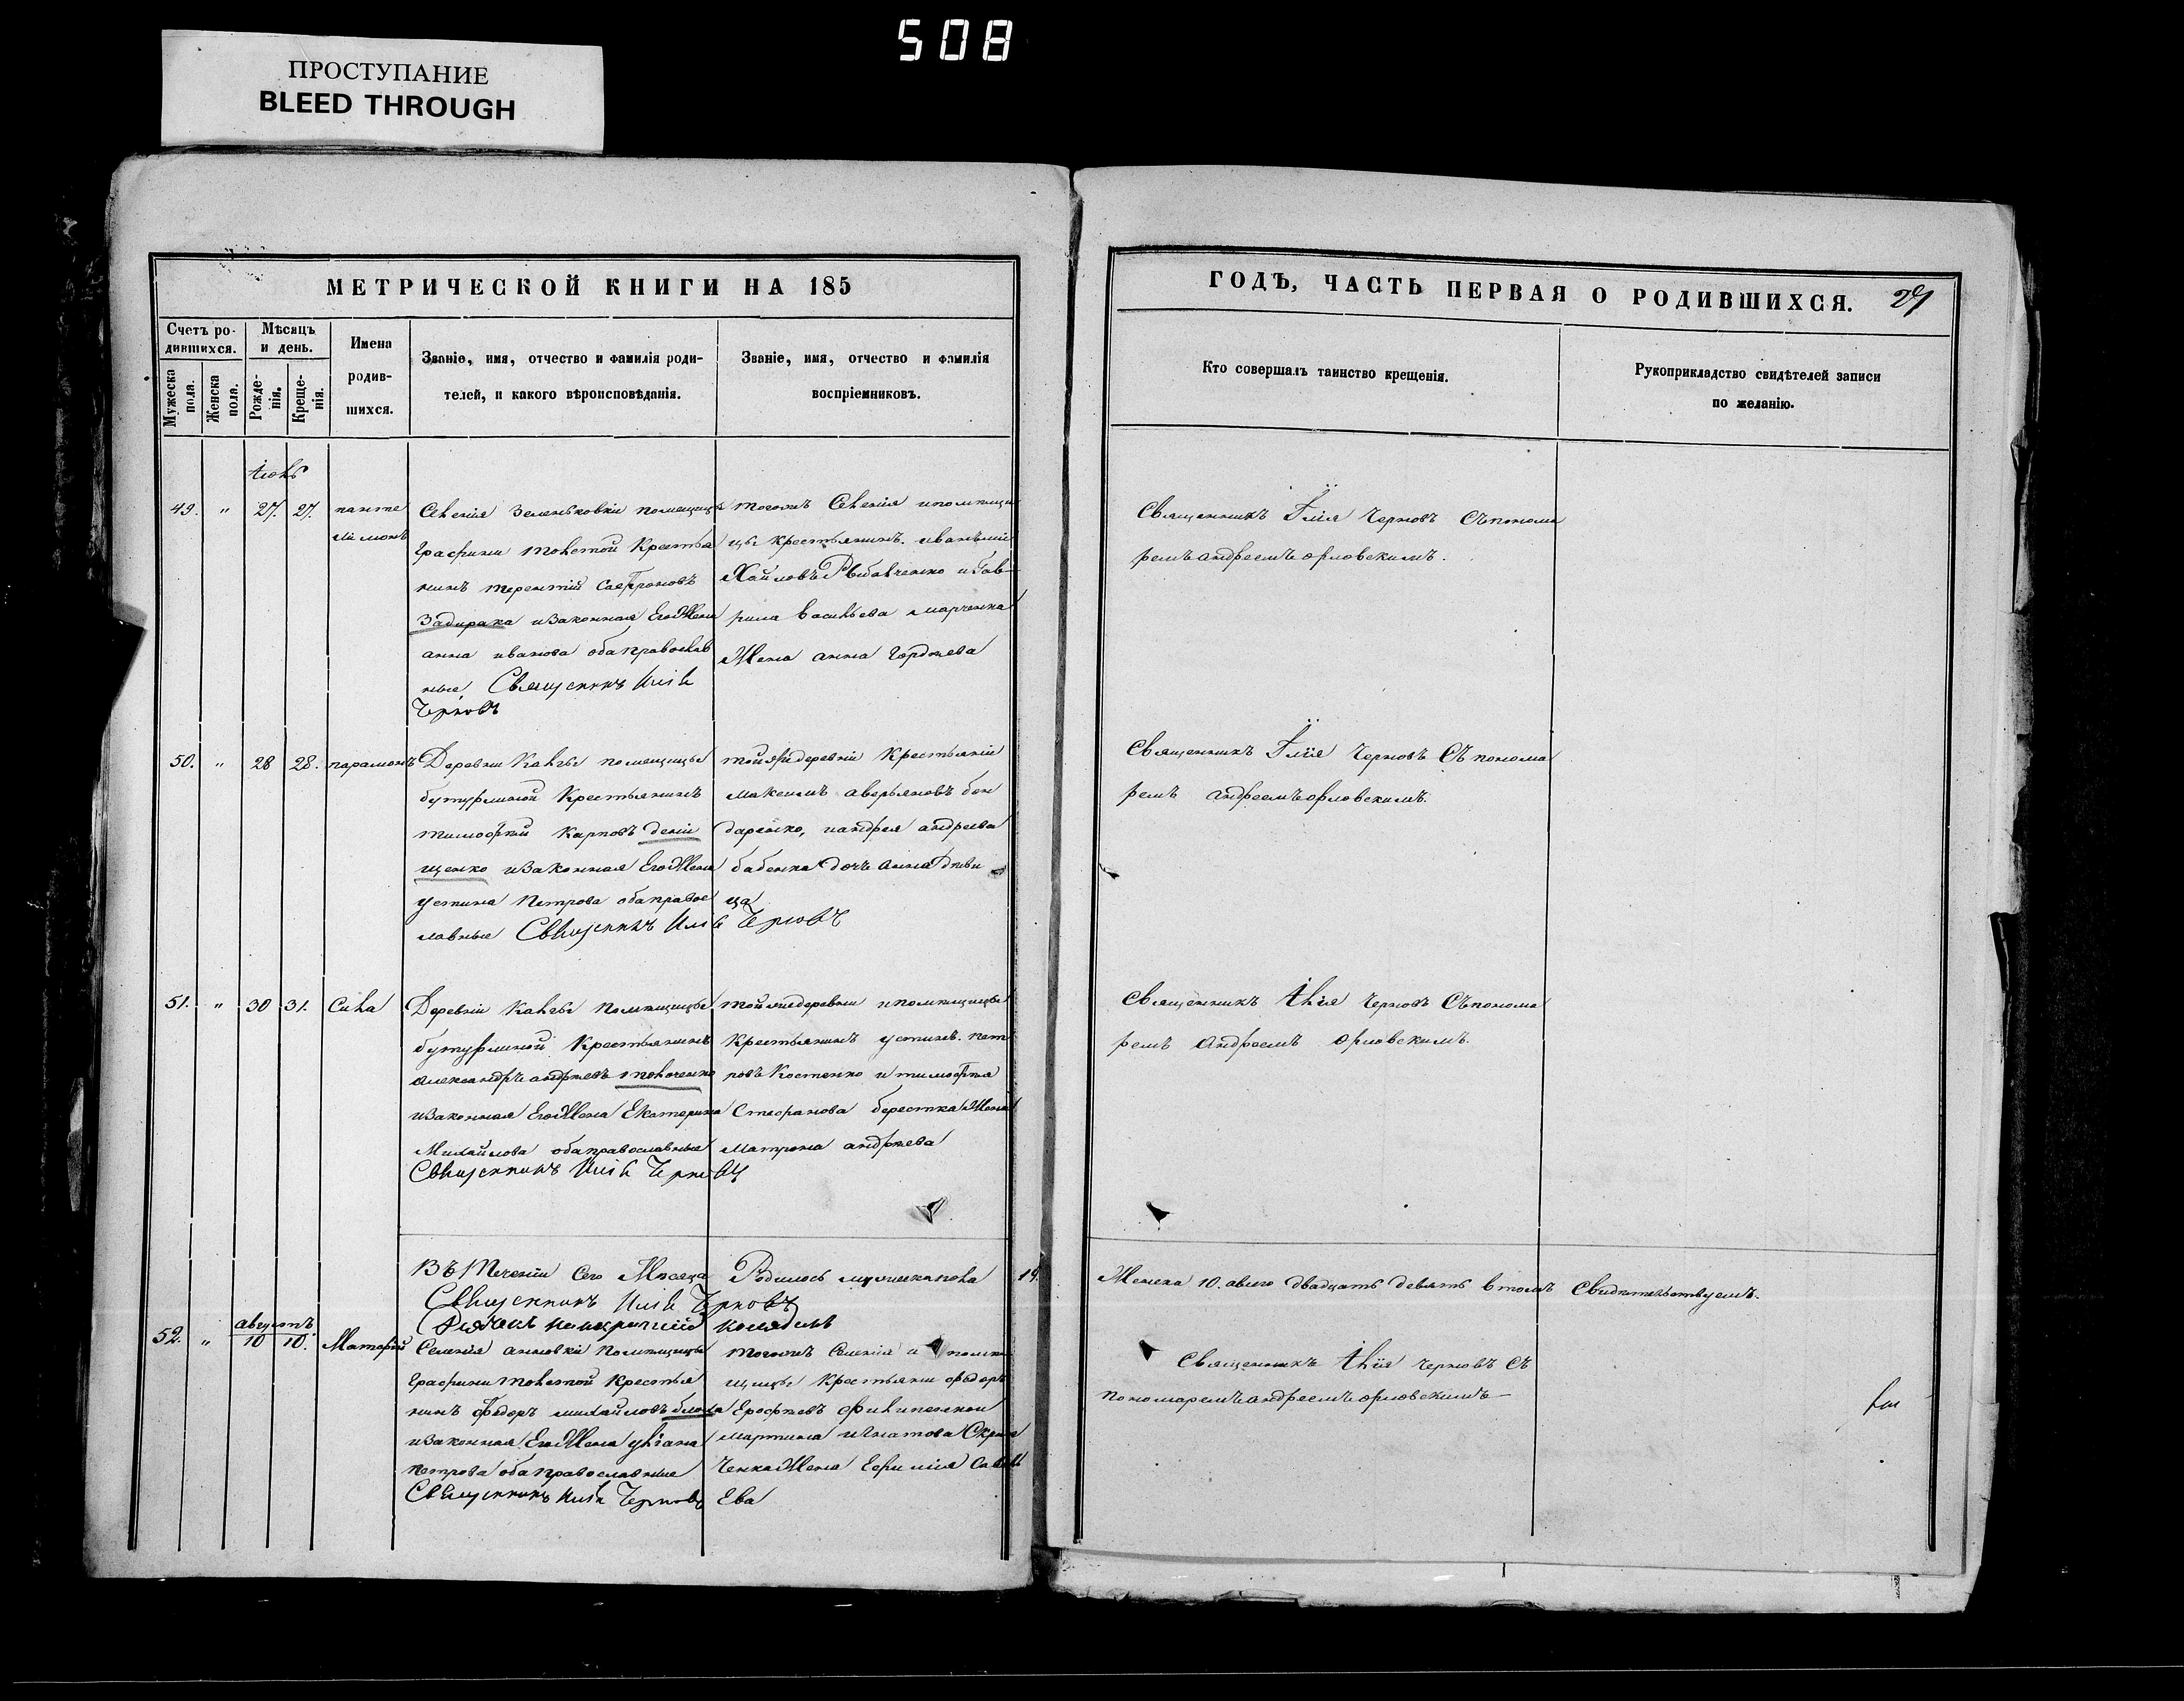 508
ПРОСТУПАНИЕ
BLEED THROUGH
МЕТРИЧЕСКОЙ КНИГИ НА 185
Счетъ ро-
дившихся.
Мѣсяцъ
и день.
Имена
родив-
шихся.
Мужеска
пола.
Женска
пола.
Рожде-
нія.
Креще-
нія.
Званіе, имя, отчество и фамилія роди-
телей, и какого вѣроисповѣданія.
Званіе, имя, отчество и фамилія
воспріемниковъ.
49. " 27. 27.
панте
лимонъ
Селенія Зеленьковки помещицы
Графини Толстой Крестья
нинъ терентій
Задирака изаконная Его Жена
анна иванова оба православ
ные, Священникъ Илія
Черновъ
тогожъ Селенія ипомѣщи
цы крестьянинъ. иванъ ми
хайловъ Рыбалченко
васильева марченка
Жена анна Гордѣева
50. " 28 28. парамонъ
Деревни помещицы
бутурлиной Крестьянинъ
тимофей Карповъ дени
щенко изаконная Его Жена
устина Петрова оба правос
лавные Священникъ Илія Черновъ
тойже деревни Крестьяни
максимъ аверьяновъ бон
даренко, иандрея андреева
бабенка дочь анна дѣви
ца
51. " 30 31. Сила
Деревни помѣщицы
бутурлиной Крестьянинъ
александръ андреевъ
изаконная Его Жена Екатерина
Михайлова оба православные
Священникъ Илія Черновъ
тойже деревни ипомѣщицы
Крестьянинъ устинъ. пет
ровъ Костенко и тимофея
Стефанова берестка Жена
матрона андреева
Въ Теченіи Сего Мѣсяца Родилось мужеска пола 19.
Священникъ Илія Черновъ
августъ
52. " 10 10. Матфей
Селенія анновки Помѣщицы
Графини Толстой Крестья
нинъ Федоръ михайловъ
изаконная Его Жена уліана
петрова оба православные
Священникъ Илія Черновъ
тогожъ Селенія и помѣ
щицы Крестьяни федоръ
Ерофѣевъ
мартина игнатова
ченка Жена Ефимія
ева
ГОДЪ, ЧАСТЬ ПЕРВАЯ О РОДИВШИХСЯ.
Кто совершалъ таинство крещенія.
Рукоприкладство свидѣтелей записи
по желанію.
Священникъ Илія Черновъ Съ понома
ремъ андреемъ орловскимъ.
Священникъ Илія Черновъ Съ понома
ремъ андреемъ орловскимъ.
Священникъ Илія Черновъ Съ понома
ремъ андреемъ орловскимъ.
Женска 10. авсего двадцать девять втомъ Свидѣтельствуемъ.
Священникъ Илія Черновъ Съ
пономаремъ андреемъ орловскимъ